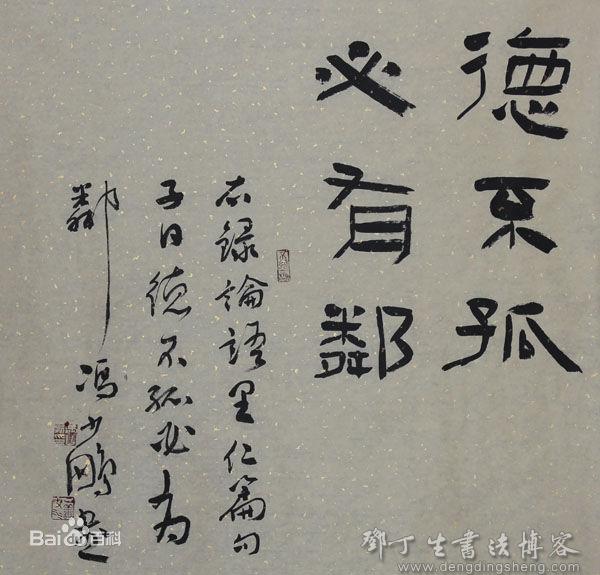 德不孤
必有鄰
右錄論語里仁篇句
子曰德不孤必有
鄰 馮少鵬書
Bai百科
鄧丁生書法博客
www.dengdingsheng.com